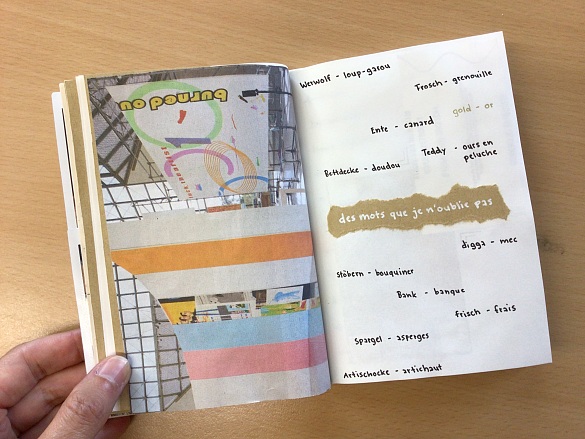 burned on
Werwolf - loup-garou
Frosch - grenouille
gold - or
Ente - canard
Teddy - ours en
peluche
Bettdecke - doudou
des mots que je n'oublie pas
digga - mec
Stöbern - bouquiner
Bank - banque
frisch - frais
Spargel - asperges
Artischocke - artichaut